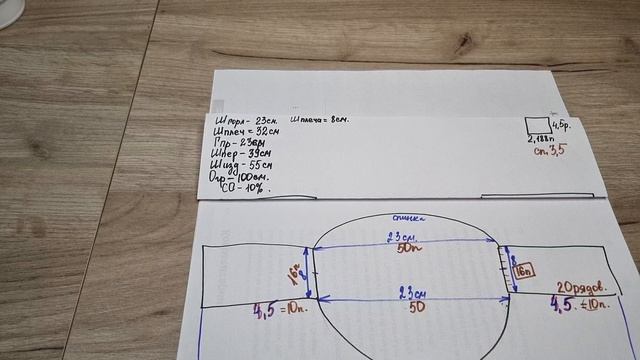 Шгорл - 23см.
Шплеча = 8см.
Шплеч = 32см
Гпр - 23см
Шпер - 39см
Шизд - 55см
Огр - 100см.
СО - 10%.
4,5р.
2,188п
сп.3,5
спинка
23 см.
50п
16п
8
8
16п
23см
50
20рядов.
4,5 = 10п.
4,5 = 10п.